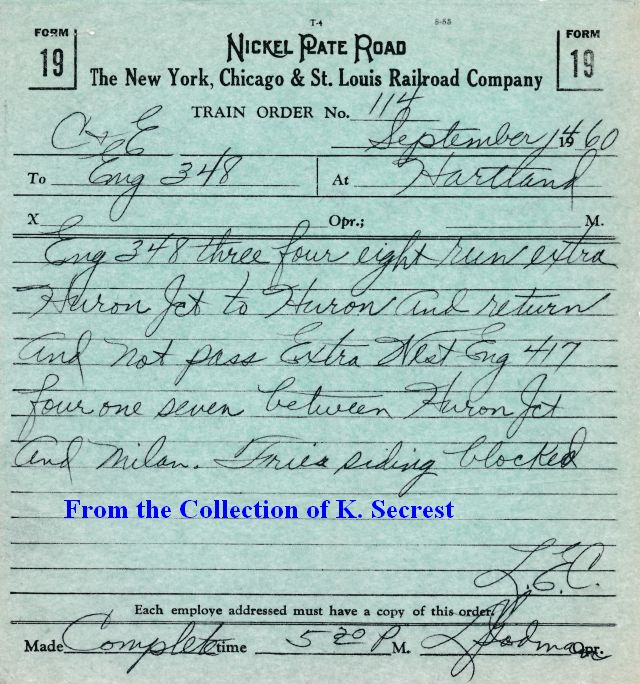 T-4 5-55
FORM 19 NICKEL PLATE ROAD FORM 19
The New York, Chicago & St. Louis Railroad Company
TRAIN ORDER No. 114
C & E September 14 1960
To Eng 348 At Hartland
X Opr.; M.
Eng 348 three four eight run extra
Huron Jct to Huron and return
and not pass Extra West Eng 417
four one seven between Huron Jct
and Milan. Fries siding blocked
From the Collection of K. Secrest
L.E.C.
Each employe addressed must have a copy of this order.
Made Complete time 5 20 P M. Opr.